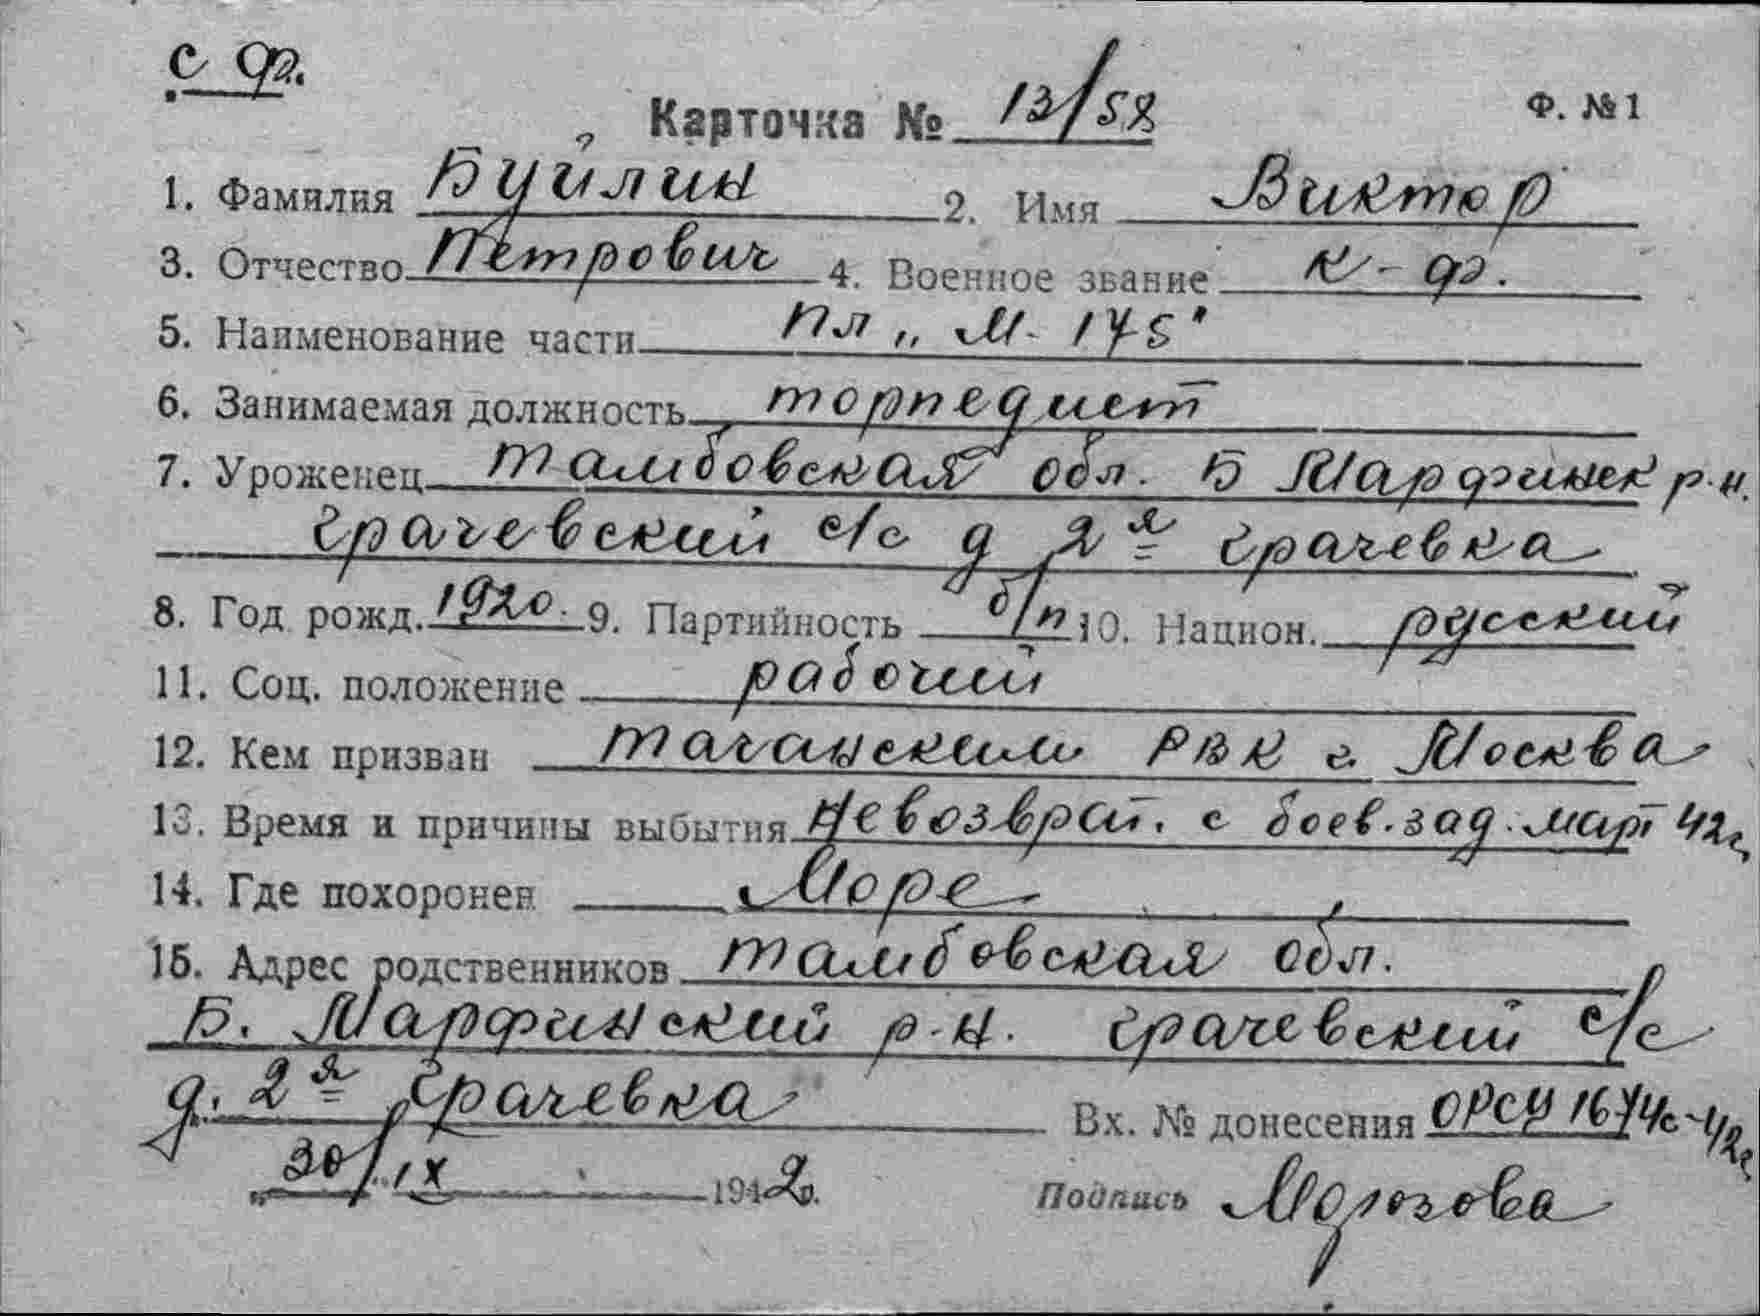 с ф.
Карточка № 13/58 Ф. №1
1. Фамилия Буйлин 2. Имя Виктор
3. Отчество Петрович 4. Военное звание к-ф.
5. Наименование части пл „М-175"
6. Занимаемая должность торпедист
7. Уроженец Тамбовская обл. Б Марфинск р.н.
Грачевский с/с д 2я Грачевка
8. Год рожд. 1920. 9. Партийность б/п 10. Национ. русский
11. Соц. положение рабочий
12. Кем призван Таганским РВК г. Москва
13. Время и причины выбытия Невозврат. с боев. зад. март 42г.
14. Где похоронен Море
15. Адрес родственников Тамбовская обл.
Б. Марфинский р-н. Грачевский с/с
д. 2я Грачевка Вх. № донесения ОРСУ 1674с-42г
„30/IX 1942г. Подпись Морозова